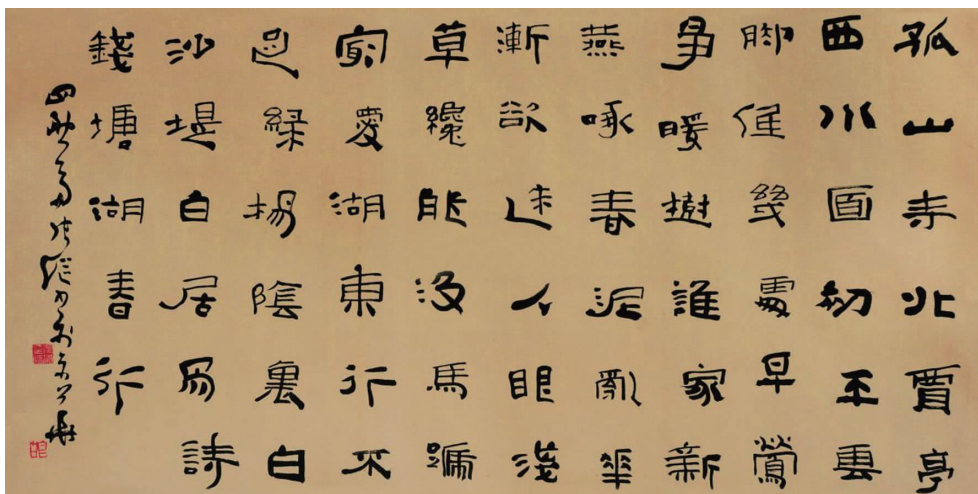 孤山寺北賈亭
西水面初平雲
脚低幾處早鶯
爭暖樹誰家新
燕啄春泥亂華
漸欲迷人眼淺
草纔能沒馬蹏
最愛湖東行不
足綠楊陰裏白
沙堤白居易詩
錢塘湖春行